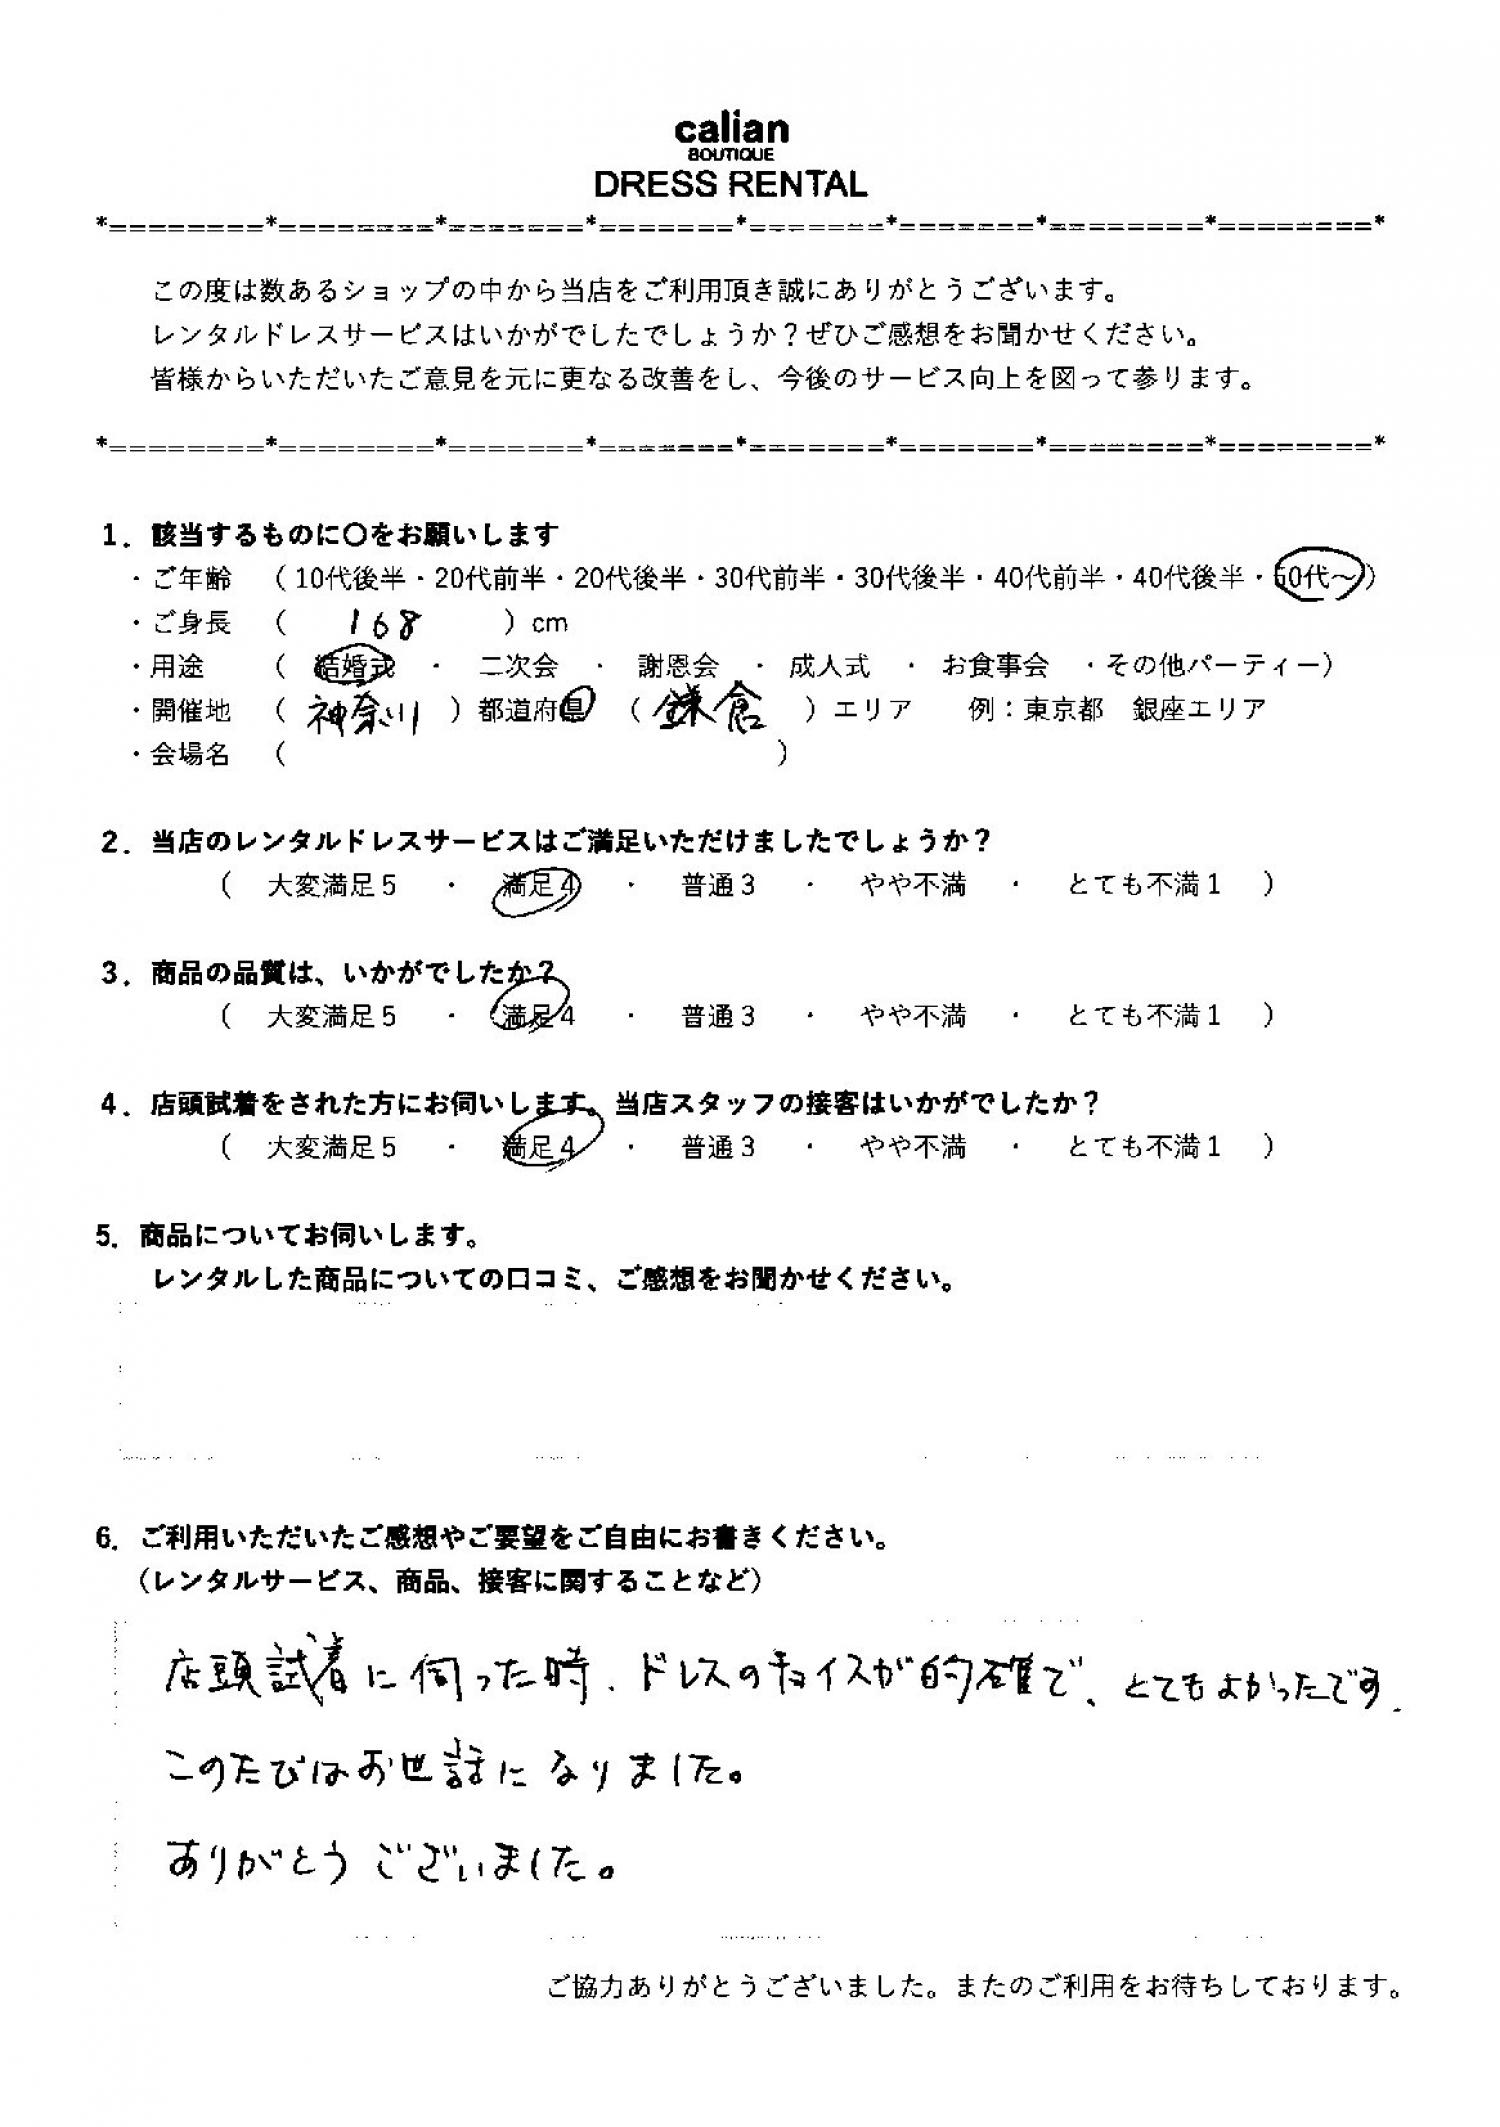 calian
BOUTIQUE
DRESS RENTAL
*========*========*=======*=======*=======*=======*========*========*
この度は数あるショップの中から当店をご利用頂き誠にありがとうございます。
レンタルドレスサービスはいかがでしたでしょうか？ぜひご感想をお聞かせください。
皆様からいただいたご意見を元に更なる改善をし、今後のサービス向上を図って参ります。
*========*========*=======*=======*=======*=======*========*========*
1．該当するものに〇をお願いします
・ご年齢　（10代後半・20代前半・20代後半・30代前半・30代後半・40代前半・40代後半・50代～）
・ご身長　（　168　）cm
・用途　（　結婚式　・　二次会　・　謝恩会　・　成人式　・　お食事会　・その他パーティー）
・開催地　（　神奈川　）都道府県　（　鎌倉　）エリア　例：東京都　銀座エリア
・会場名　（　）
2．当店のレンタルドレスサービスはご満足いただけましたでしょうか？
（　大変満足5　・　満足4　・　普通3　・　やや不満　・　とても不満1　）
3．商品の品質は、いかがでしたか？
（　大変満足5　・　満足4　・　普通3　・　やや不満　・　とても不満1　）
4．店頭試着をされた方にお伺いします。当店スタッフの接客はいかがでしたか？
（　大変満足5　・　満足4　・　普通3　・　やや不満　・　とても不満1　）
5．商品についてお伺いします。
レンタルした商品についての口コミ、ご感想をお聞かせください。
6．ご利用いただいたご感想やご要望をご自由にお書きください。
（レンタルサービス、商品、接客に関することなど）
店頭試着に伺った時、ドレスのチョイスが的確で、とてもよかったです.
このたびはお世話になりました。
ありがとうございました。
ご協力ありがとうございました。またのご利用をお待ちしております。